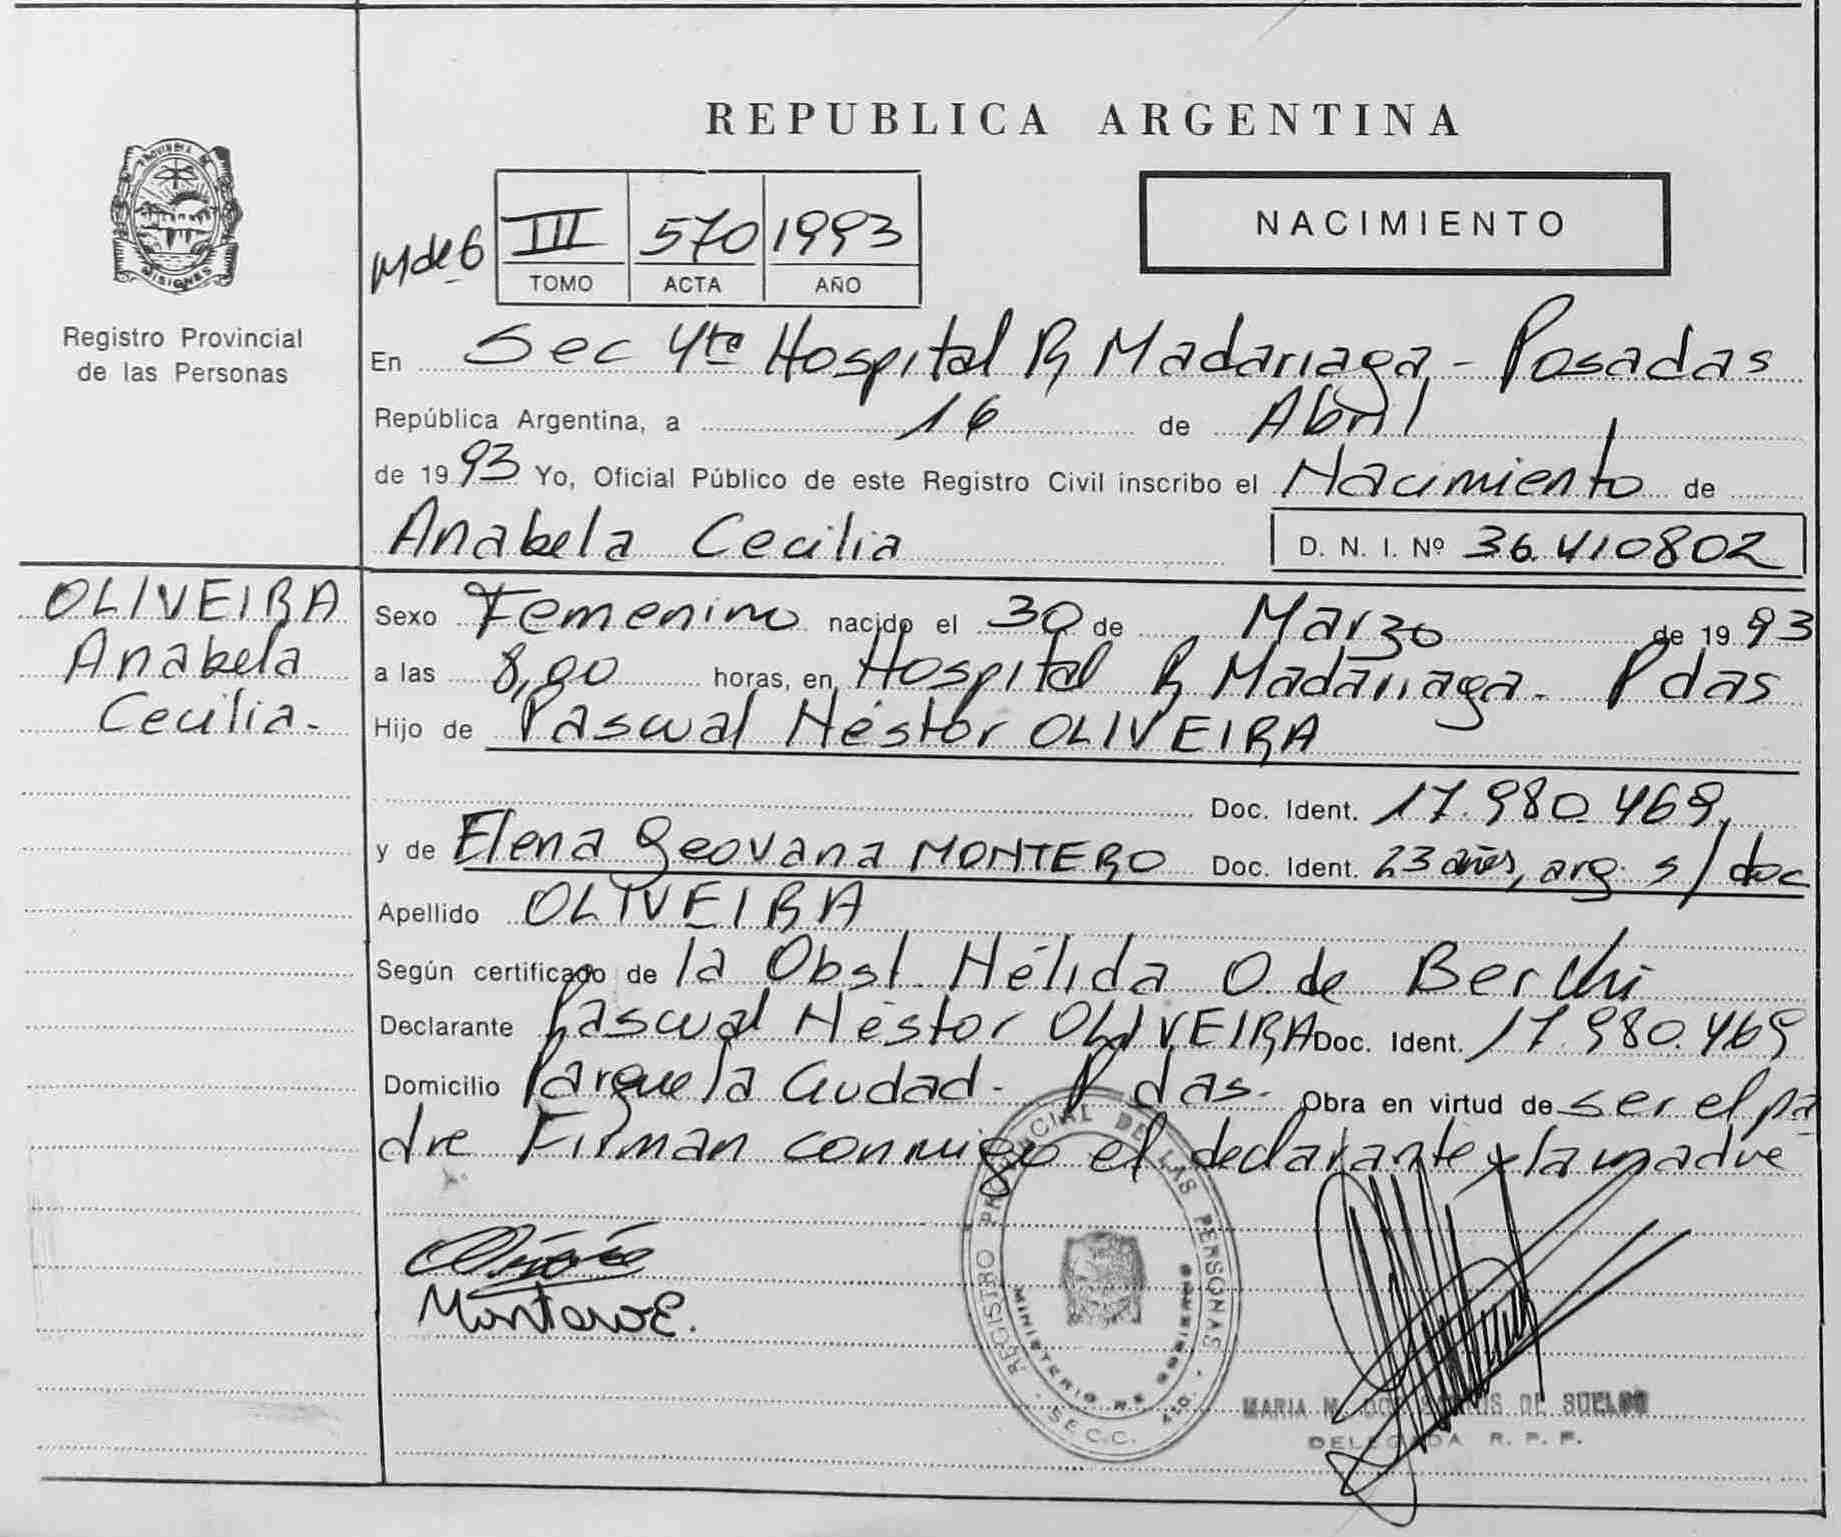 REPUBLICA ARGENTINA
PROVINCIA DE
MISIONES
Registro Provincial
de las Personas
Mde6
III 570 1993
TOMO ACTA AÑO
NACIMIENTO
En Sec 4ta Hospital R Madariaga - Posadas
República Argentina, a 16 de Abril
de 1993 Yo, Oficial Público de este Registro Civil inscribo el Nacimiento de
Anabela Cecilia D. N. I. Nº 36.410802
OLIVEIRA
Anabela
Cecilia.-
Sexo Femenino nacido el 30 de Marzo de 1993
a las 8,00 horas, en Hospital R Madariaga - Pdas
Hijo de Pascual Néstor OLIVEIRA
Doc. Ident. 17.980.469,
y de Elena Geovana MONTERO Doc. Ident. 23 años, arg. s/doc
Apellido OLIVEIRA
Según certificado de la Obst. Hélida O. de Berchi
Declarante Pascual Néstor OLIVEIRA Doc. Ident. 17.980.469
Domicilio Parque la Ciudad - Pdas. Obra en virtud de ser el pa
dre Firman conmigo el declarante y la madre
Montero E.
REGISTRO PROVINCIAL DE LAS PERSONAS
MINISTERIO DE GOBIERNO
SECC. 4TO.
MARIA M. DOS SANTOS DE SUELDO
DELEGADA R. P. P.